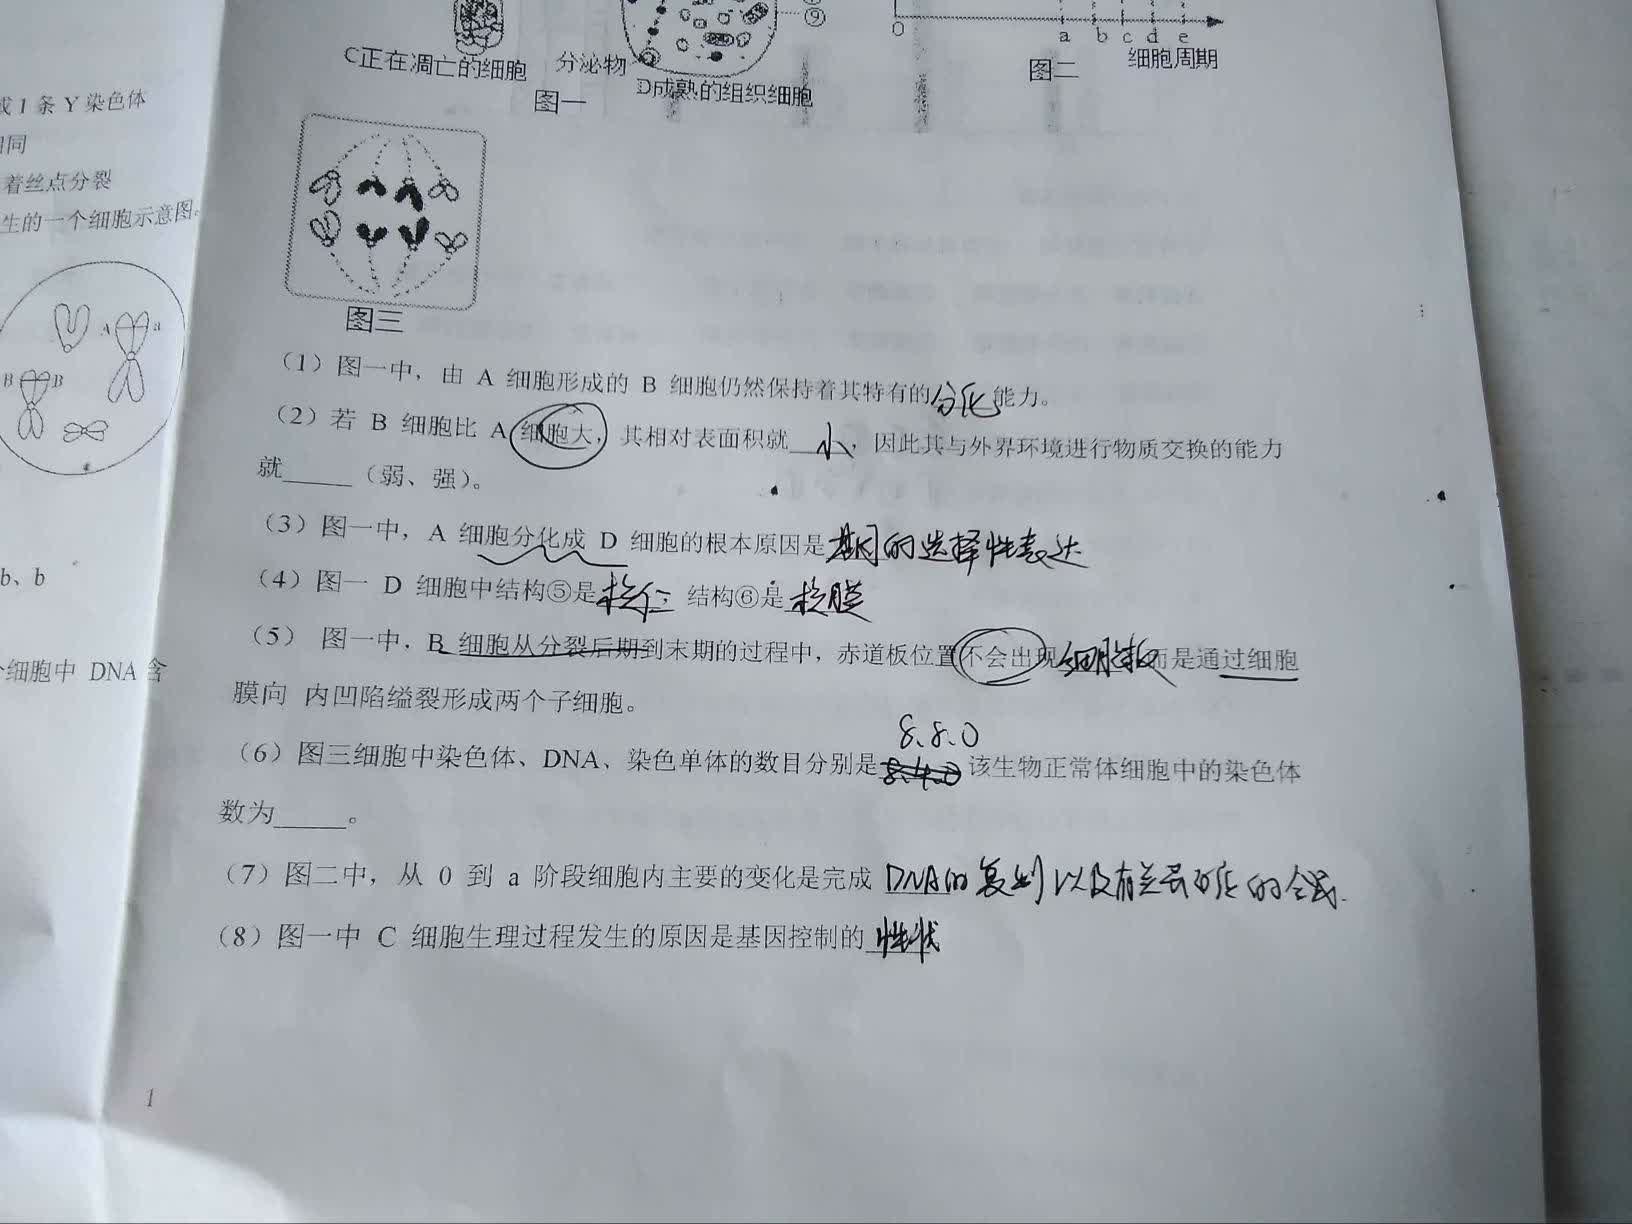 ⑨
0 a b c d e
C正在凋亡的细胞 分泌物 图二 细胞周期
D成熟的组织细胞
图一
或1条Y染色体
相同
着丝点分裂
生的一个细胞示意图。
A a
B B
b、b
个细胞中 DNA 含
1
图三
(1)图一中，由 A 细胞形成的 B 细胞仍然保持着其特有的分化能力。
(2)若 B 细胞比 A 细胞大，其相对表面积就 小，因此其与外界环境进行物质交换的能力
就_____（弱、强）。
(3)图一中，A 细胞分化成 D 细胞的根本原因是基因的选择性表达
(4)图一 D 细胞中结构⑤是核仁；结构⑥是核膜
(5) 图一中，B 细胞从分裂后期到末期的过程中，赤道板位置不会出现细胞板而是通过细胞
膜向 内凹陷缢裂形成两个子细胞。
8、8、0
(6)图三细胞中染色体、DNA、染色单体的数目分别是8、4、0 该生物正常体细胞中的染色体
数为_____。
(7)图二中，从 0 到 a 阶段细胞内主要的变化是完成 DNA的复制以及有关蛋白质的合成.
(8)图一中 C 细胞生理过程发生的原因是基因控制的 性状